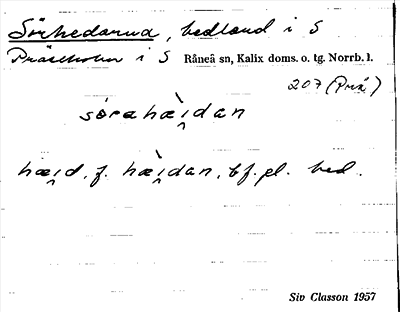 Sörhedarna, hedland i S
Prästholm i S Råneå sn, Kalix doms. o. tg. Norrb. l.
207 (Prä.)
sørahà̧ı̯dan
hæı̯d, f. hæ̀ı̯dan, bf. pl. hed.
Siv Classon 1957